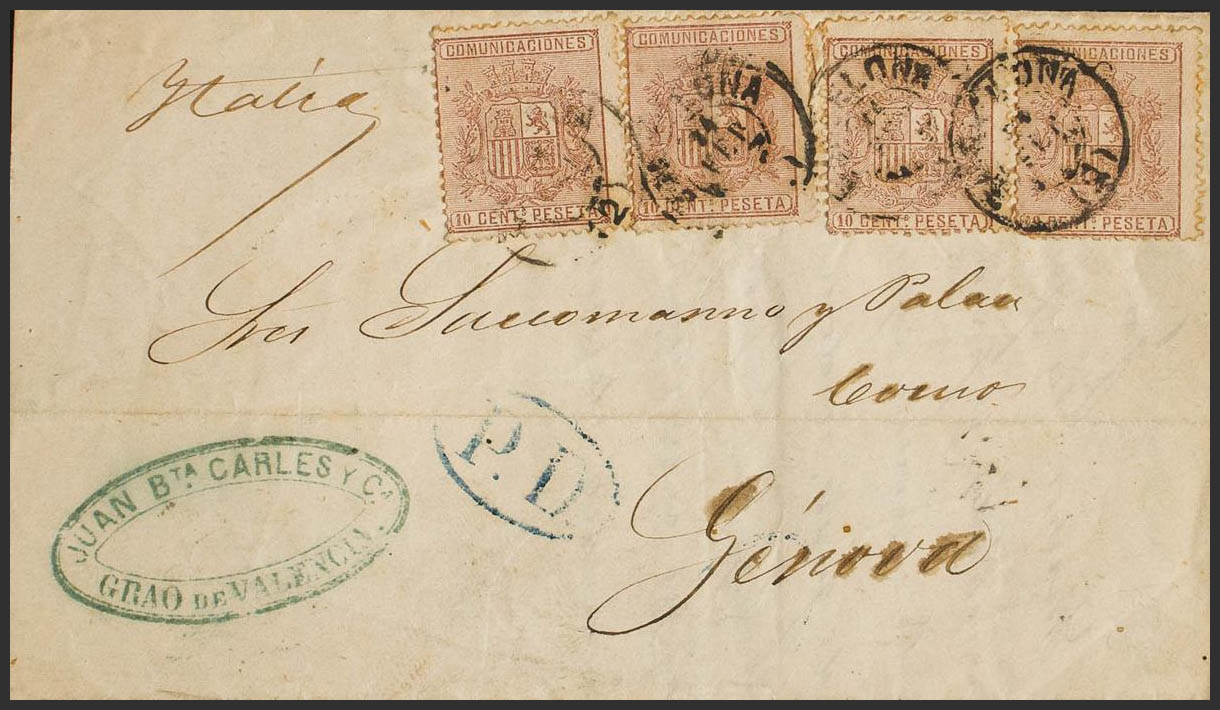 COMUNICACIONES
10 CENTS. PESETA
COMUNICACIONES
10 CENTS. PESETA
COMUNICACIONES
10 CENTS. PESETA
COMUNICACIONES
CENTS. PESETA
Italia
Sres Succomanno y Palau
Génova
P.D
JUAN BTA. CARLES Y CA.
GRAO DE VALENCIA.